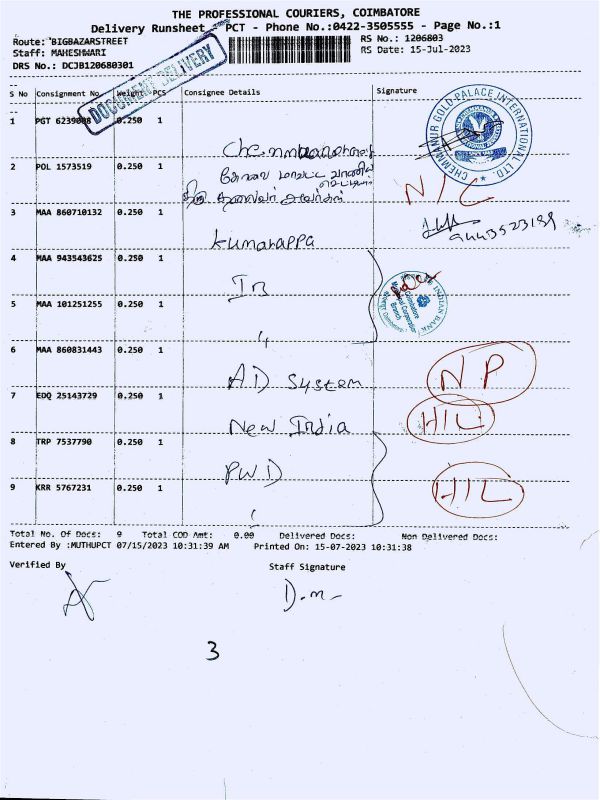 THE PROFESSIONAL COURIERS, COIMBATORE
Delivery Runsheet - PCT - Phone No.:0422-3505555 - Page No.:1
Route: BIGBAZARSTREET RS No.: 1206803
Staff: MAHESHWARI RS Date: 15-Jul-2023
DRS No.: DCJB120680301
DOCUMENT DELIVERY
S No Consignment No. Weight PCS Consignee Details Signature
CHEMMANUR GOLD PALACE INTERNATIONAL LTD.
1 PGT 0.250 1
2 POL 1573519 0.250 1 NIC
3 MAA 860710132 0.250 1 kumarappa 9443523189
4 MAA 943543625 0.250 1 IB
INDIAN BANK
Coimbatore
Corporation
Branch
5 MAA 101251255 0.250 1 "
6 MAA 860831443 0.250 1 AD System NP
7 EDQ 25143729 0.250 1 New India HIL
8 TRP 7537790 0.250 1 PWD
9 KRR 5767231 0.250 1 " HIL
Total No. Of Docs: 9 Total COD Amt: 0.00 Delivered Docs: Non Delivered Docs:
Entered By :MUTHUPCT 07/15/2023 10:31:39 AM Printed On: 15-07-2023 10:31:38
Verified By Staff Signature
D.m-
3